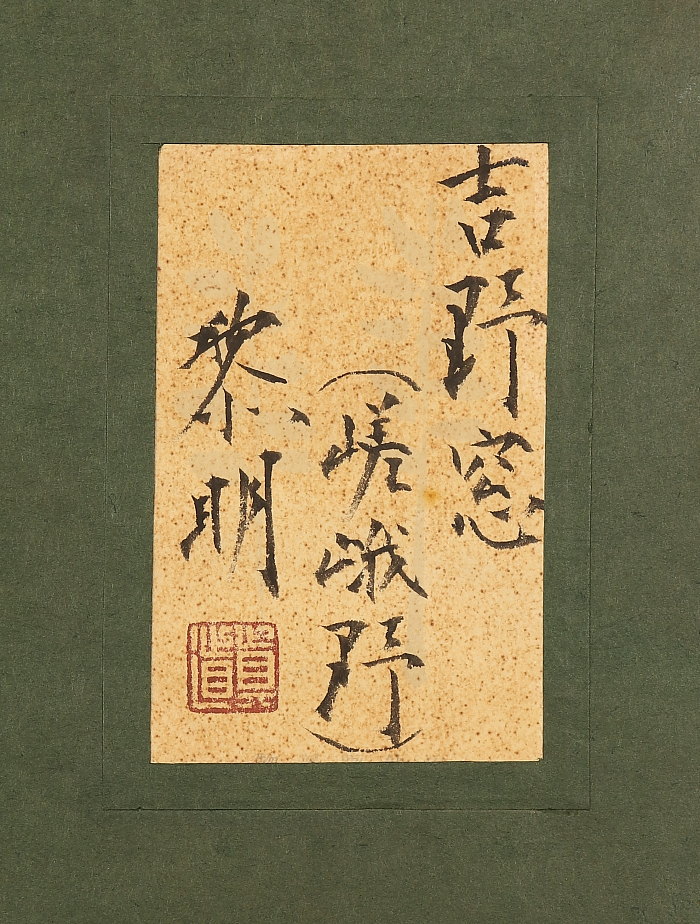 吉野窓
（嵯峨野）
黎明